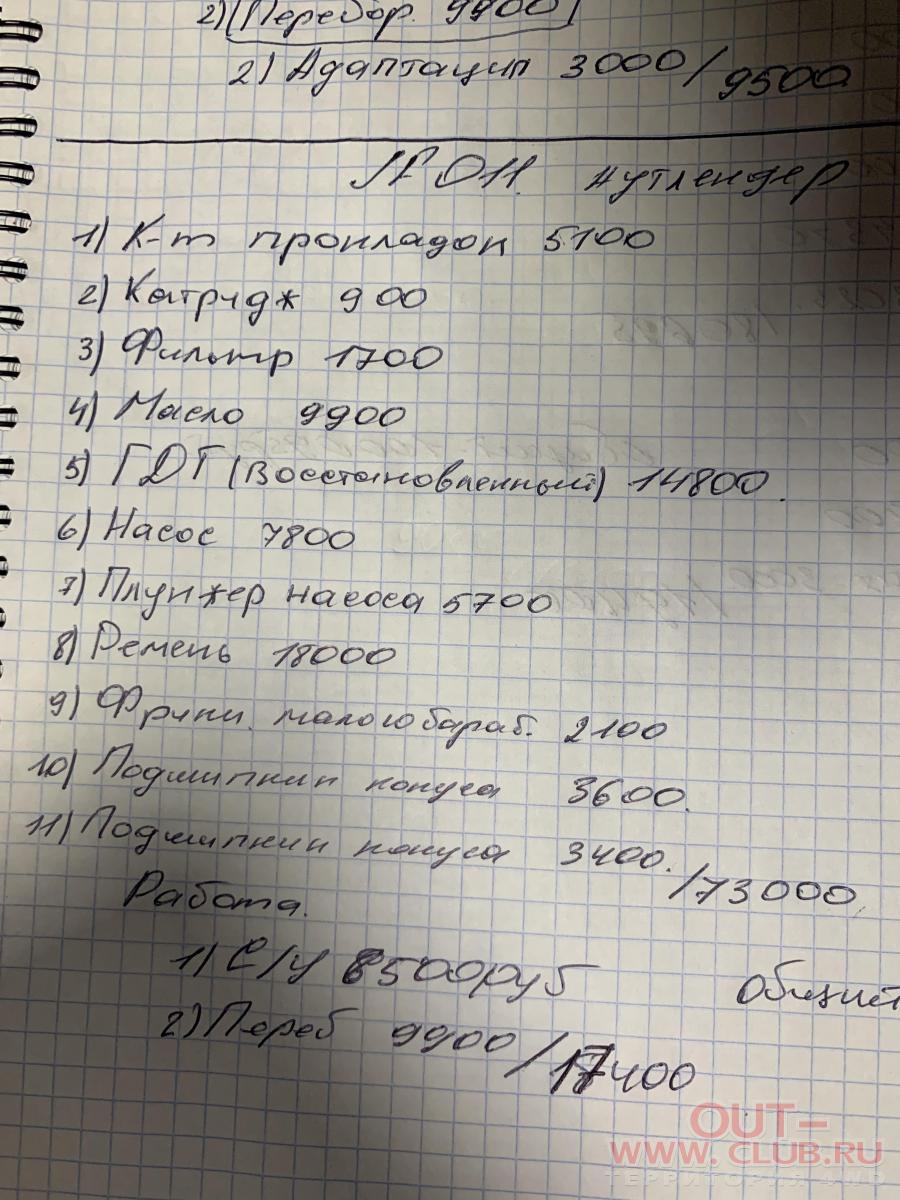 2) Перебор. 9900
2) Адаптации 3000/9500
JF 011. Аутлендер
1) К-т прокладок 5100
2) Катридж 900
3) Фильтр 1700
4) Масло 9900
5) ГДТ (Восстановленный) 14800.
6) Насос 7800
7) Плунжер насоса 5700
8) Ремень 18000
9) малого бараб. 2100
10) Подшипник конуса 3600.
11) Подшипник конуса 3400. /73000
Работа.
1) С/У 8500руб
Общий
2) Переб 9900 /17400
OUT-
WWW.CLUB.RU
ТЕРРИТОРИЯ 4WD